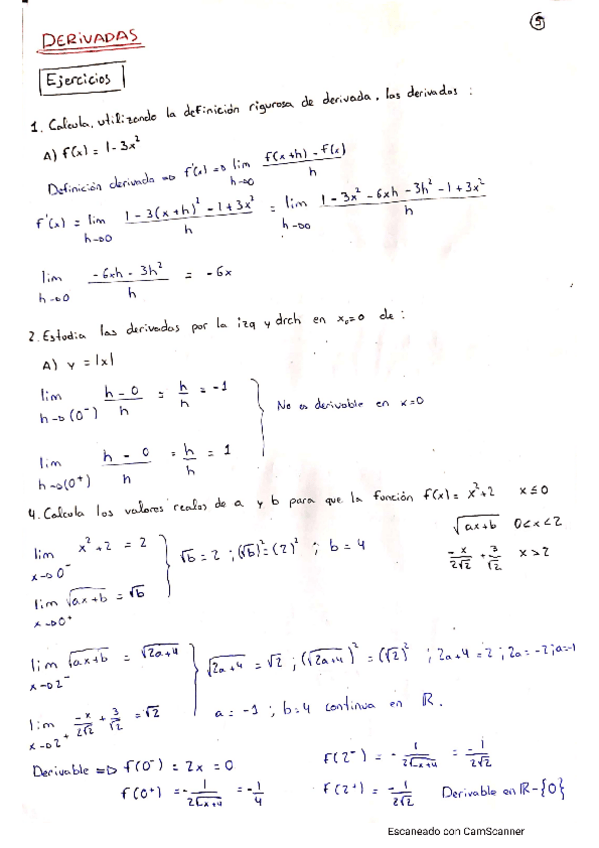 5
DERIVADAS
Ejercicios
1. Calcula, utilizando la definición rigurosa de derivada, las derivadas :
A) f(x) = 1-3x²
Definición derivada => f'(x) => lim h→0 (f(x+h) - f(x))/h
f'(x) = lim h→0 (1-3(x+h)² -1+3x²)/h = lim h→0 (1-3x²-6xh-3h²-1+3x²)/h
lim h→0 (-6xh-3h²)/h = -6x
2. Estudia las derivadas por la izq y drch en x₀=0 de :
A) y = |x|
lim h→(0⁻) (h-0)/h = h/h = -1
No es derivable en x=0
lim h→(0⁺) (h-0)/h = h/h = 1
4. Calcula los valores reales de a y b para que la función f(x) = x²+2 x≤0
√ax+b 0<x<2
-x/2√2 + 3/√2 x>2
lim x→0⁻ x²+2 = 2
√b = 2 ; (√b)² = (2)² ; b = 4
lim x→0⁺ √ax+b = √b
lim x→2⁻ √ax+b = √2a+4
√2a+4 = √2 ; (√2a+4)² = (√2)² ; 2a+4 = 2 ; 2a = -2 ; a=-1
lim x→2⁺ -x/2√2 + 3/√2 = √2
a = -1 ; b=4 continua en ℝ.
Derivable => f(0⁻) = 2x = 0
f(2⁻) = -1/2√-x+4 = -1/2√2
f(0⁺) = -1/2√-x+4 = -1/4
f(2⁺) = -1/2√2 Derivable en ℝ-{0}
Escaneado con CamScanner